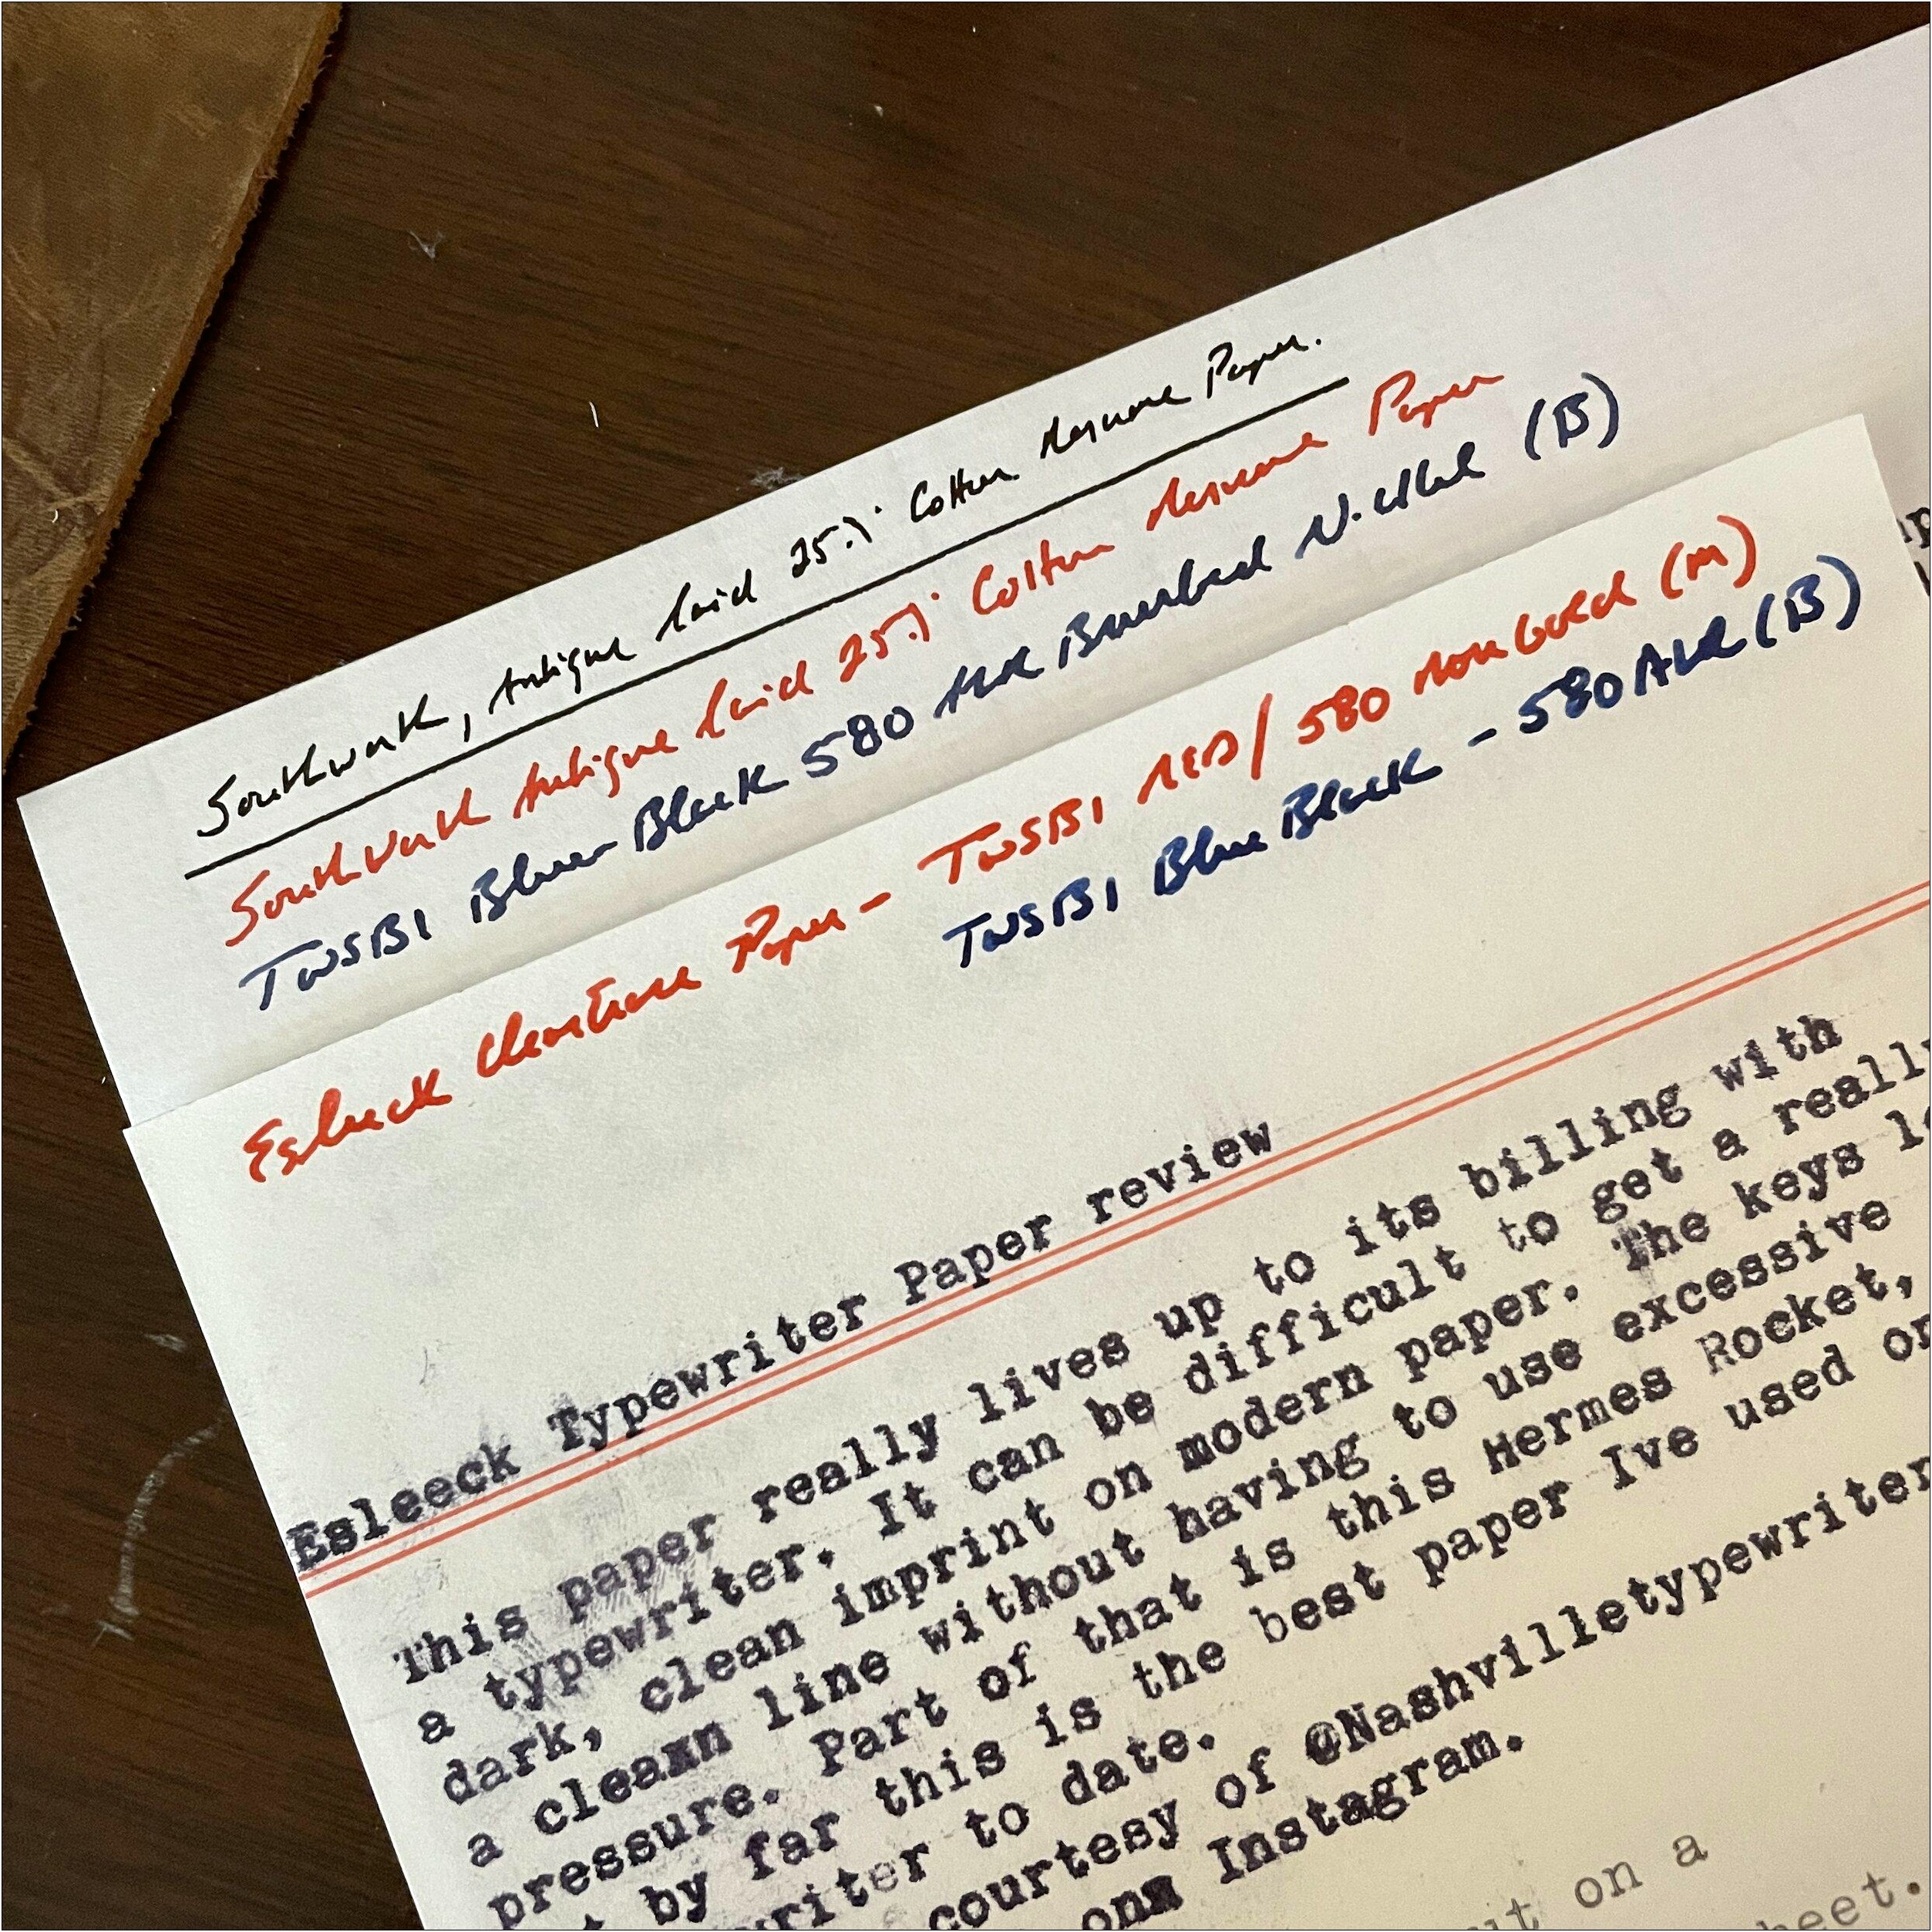 Southwork, Antique laid 25% Cotton Resume Paper.
Southwork Antique laid 25% Cotton Resume Paper
TWSBI Blue-Black 580 ALR Nickel (B)
Esleeck Paper - TWSBI RED/580 Rose Gold (M)
TWSBI Blue Black - 580 ALR (B)
Esleeck Typewriter Paper review
This paper really lives up to its billing with
a typewriter. It can be difficult to get a really
dark, clean imprint on modern paper. The keys
a cleamn line without having to use excessive
pressure. Part of that is this Hermes Rocket,
by far this is the best paper Ive used
to date.
courtesy of @Nashvilletypewriter
Instagram.
on a